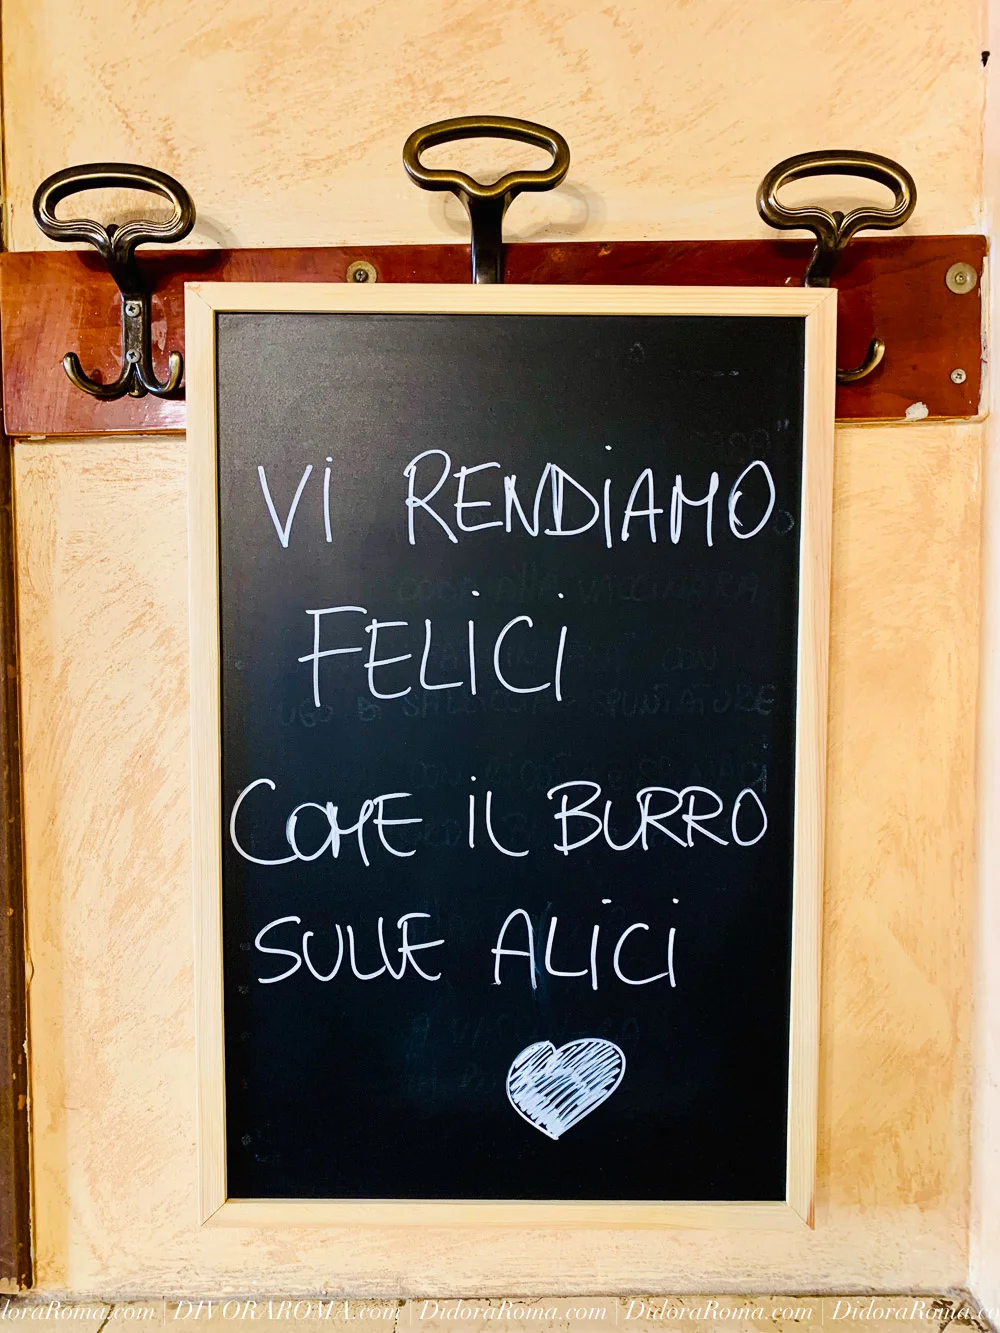 VI RENDIAMO
FELICI
COME IL BURRO
SULLE ALICI
doraRoma.com | DIVORAROMA.com | DidoraRoma.com | DidoraRoma.com | DidoraRoma.co